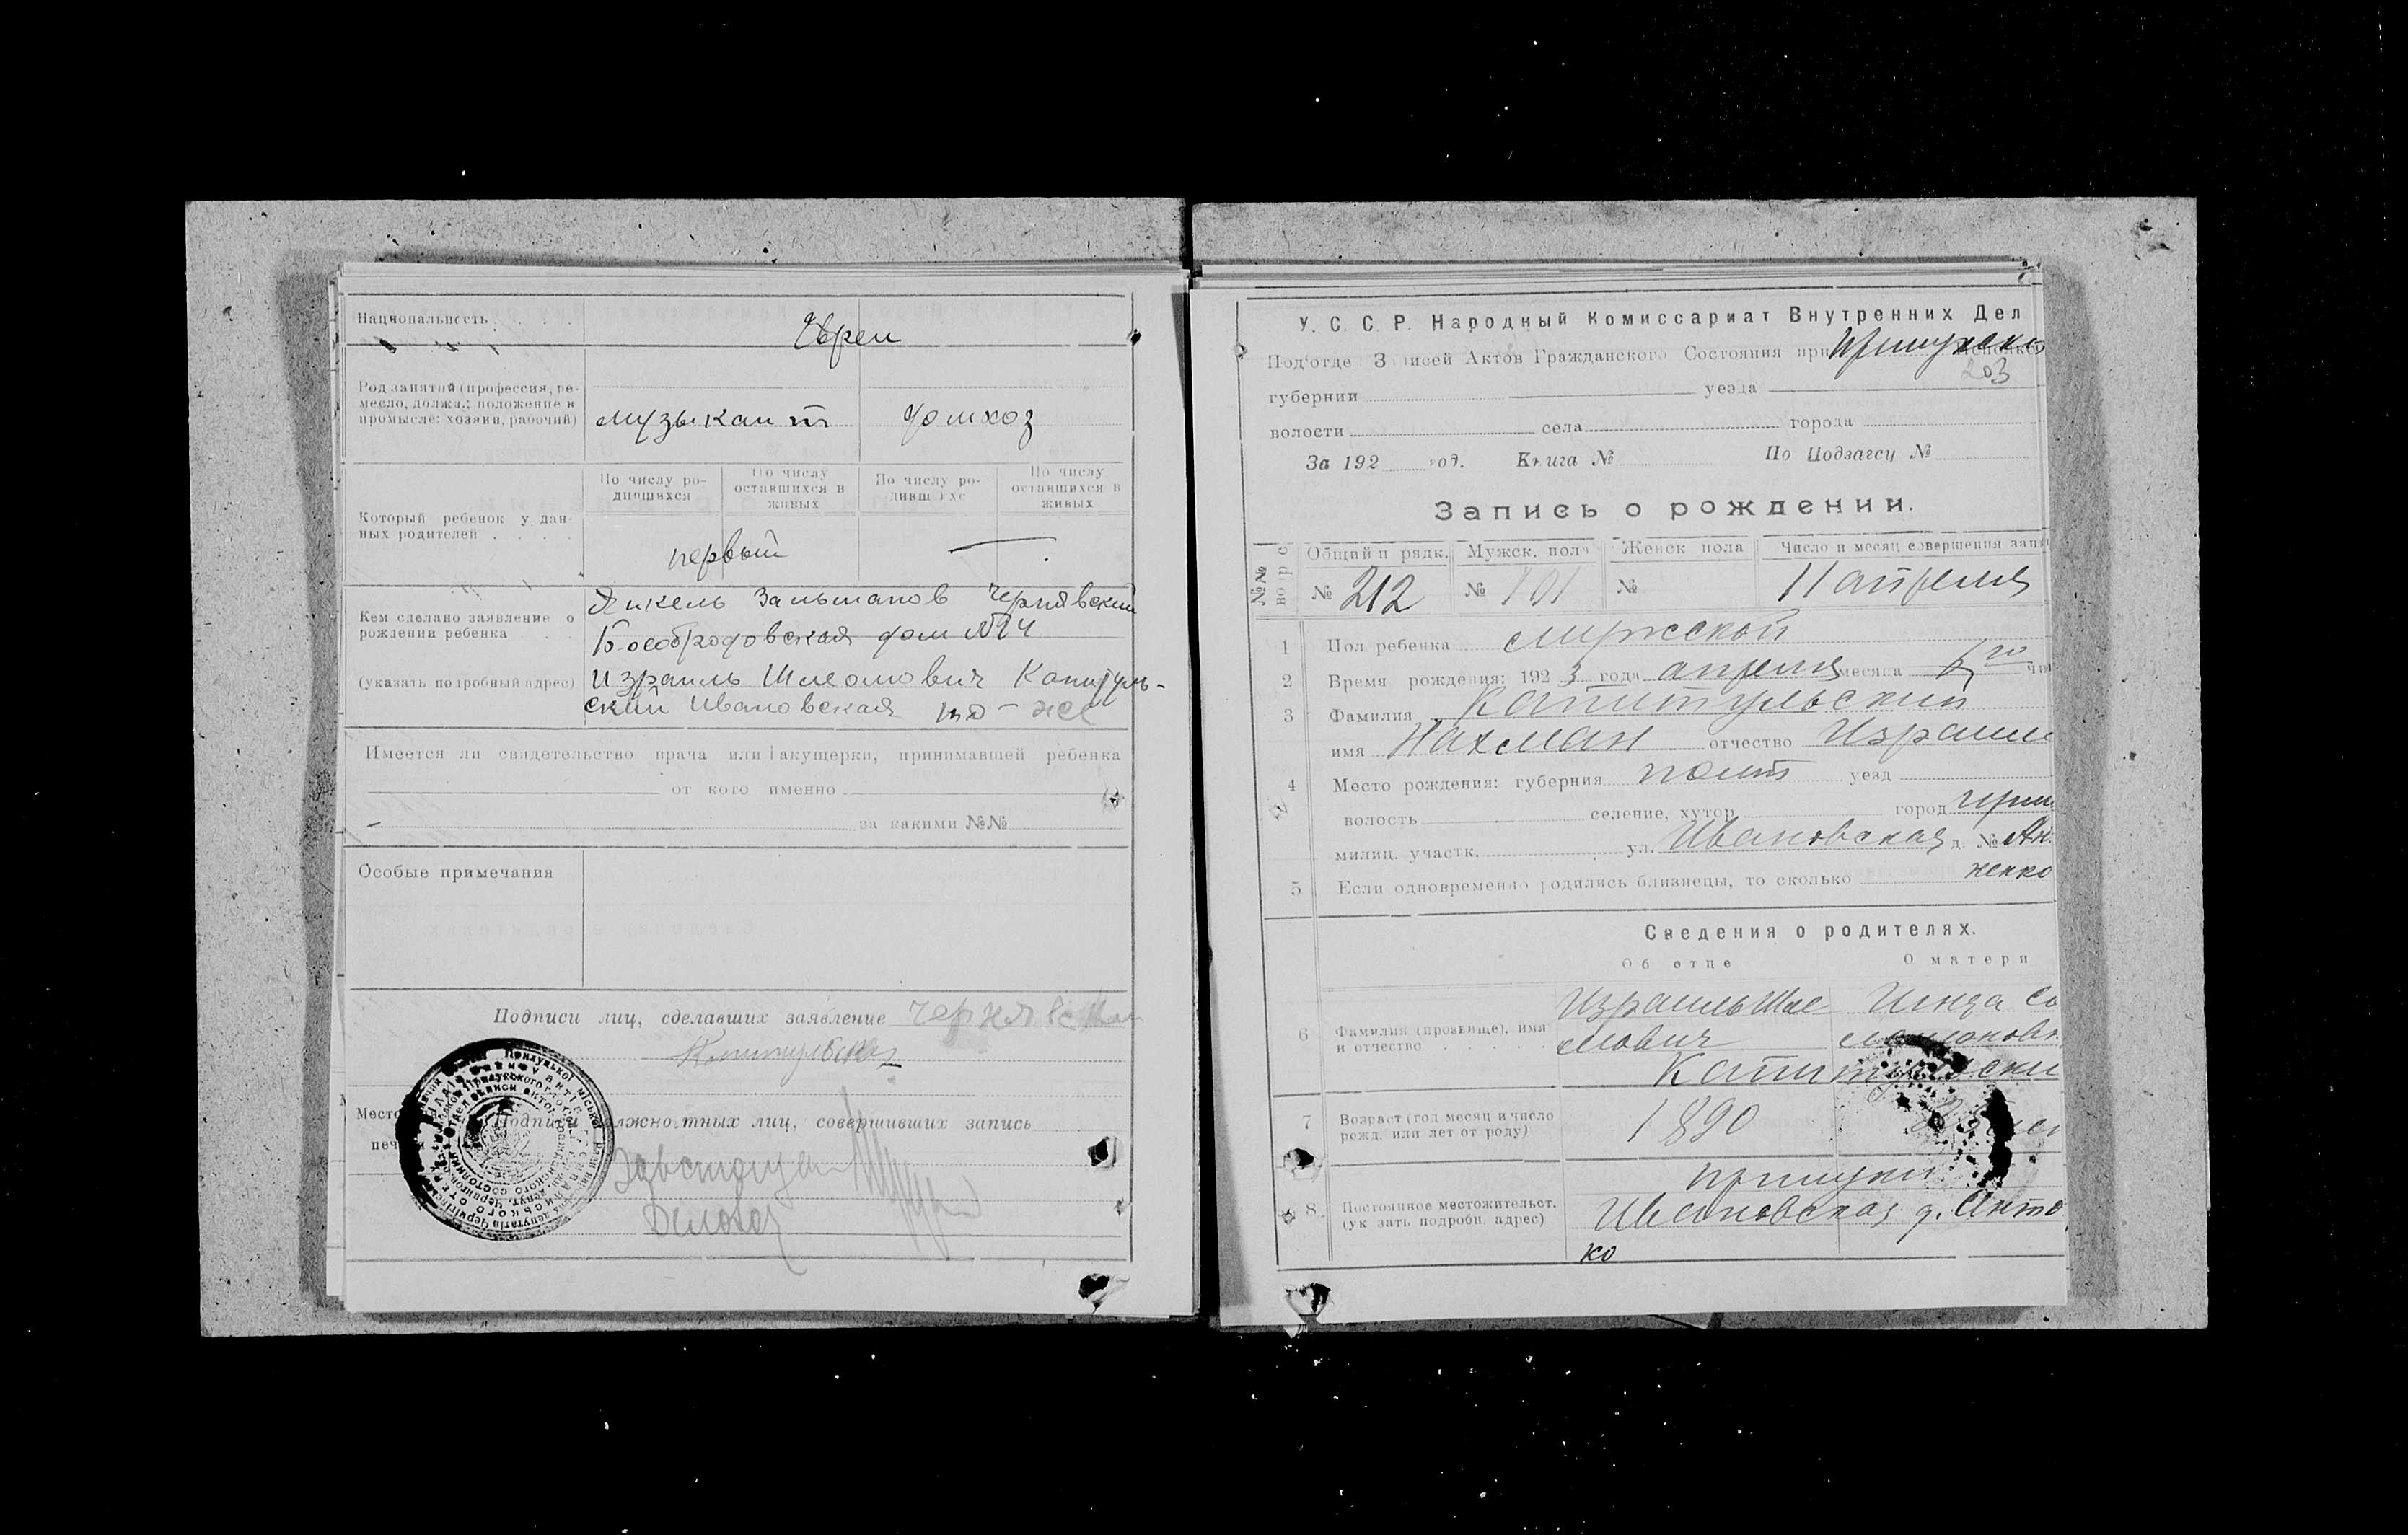 Национальность
Евреи
Род занятий (профессия, ре-
месло, должн.; положение в
промысле: хозяин, рабочий)
музыкант домхоз
По числу ро-
дившихся
По числу
оставшихся в
живых
По числу ро-
дивш хс
По числу
оставшихся в
живых
Который ребенок у дан-
ных родителей
первый —
Кем сделано заявление о
рождении ребенка
(указать подробный адрес)
Янкель Зальманов Чернявский
дом №
Израиль Шлеомович Капитуль-
ский Ивановская то-же
Имеется ли свидетельство врача или акушерки, принимавшей ребенка
от кого именно
за какими №№
Особые примечания
Подписи лиц, сделавших заявление Чернявский
Капитульский
Место
печ
Подписи должностных лиц, совершивших запись
Деловод
У. С. С. Р. Народный Комиссариат Внутренних Дел
Под'отде Записей Актов Гражданского Состояния при
203
губернии уезда
волости села города
За 192 год. Книга № По Подзагсу №
Запись о рождении.
Общий п рядк. Мужск. пола Женск пола Число и месяц совершения запи
№ 212 № 101 № 11 апреля
1 Пол ребенка мужской
2 Время рождения: 1923 года апреля месяца
3 Фамилия Капитульский
имя Нахман отчество Израил
4 Место рождения: губерния Полт уезд
волость селение, хутор город
милиц. участк. ул. Ивановская д. №
5 Если одновременно родились близнецы, то сколько
Сведения о родителях.
Об отце О матери
6 Фамилия (прозвище), имя
и отчество
Израиль Шле
мович
Капитульски
7 Возраст (год месяц и число
рожд. или лет от роду)
1890
8. Постоянное местожительст.
(ук зать подробн. адрес)
Прилуки
Ивановская д. Анто
ко